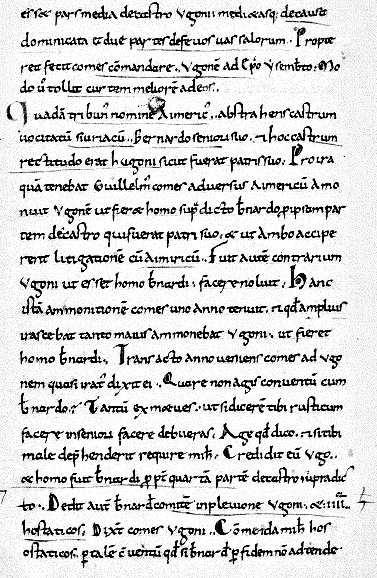 esset pars media de castro Ugoni mediaeasq; de causa
dominicata & due partes de fevos vassalorum. Propte
ret fecit comes comandare Ugonē ad ep̄o ysemb̄to. Mo
do ū tollit curtem meliorē ad eos.
Quadā tribun' nomine Aimeric' abstrahens castrum
vocitatū siuriacū Bernardo seniori suo. & hoc castrum
rectitudo erat hugoni sicut fuerat patri suo. Pro ira
quā tenebat Guillelm' comes adversus Aimericū Amo
nuit Ugonē ut fieret homo sup̄dicto b̄nardo, p ipsam par
tem de castro qui fuerat patri suo. & ut Ambo Accipe
rent litigationē cū Aimiricū. Fuit autē contrarium
Ugoni ut esset homo b̄nardi. facere noluit. Hanc
istā ammonitionē comes uno anno tenuit. & q̄d amplius
irascebat tanto maius ammonebat Ugoni. ut fieret
homo b̄nardi. Transacto Anno veniens comes ad Ugo
nem quasi irat' dixit ei. Quare non agis conventū cum
b̄nardo? Tantū ex me aves. ut si dicerē tibi rusticum
facere in seniori facere debueras. Age q̄d dico. & si tibi
male dep̄henderit require mih. Credidit eū Ugo.
& homo fuit b̄nardi, p p̄te quartā partē de castro iupradic
to. Dedit aut̄ b̄nard' comitē in plevione Ugoni. & .iiii.
hostaticos. Dixit comes Ugoni. Comēda mih hos
ostaticos. p tale cventū q̄d si b̄nard' p fidem non adtende